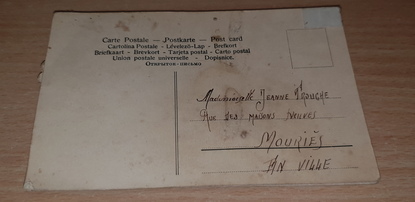 Carte Postale — Postkarte — Post card
Cartolina Postale - Levelező-Lap - Brefkort
Briefkaart - Brevkort - Tarjeta postal - Carta postal
Union postale universelle - Dopisnice.
Открытое-письмо
Mademoiselle Jeanne
Rue des maisons neuves
Mouriès
En Ville